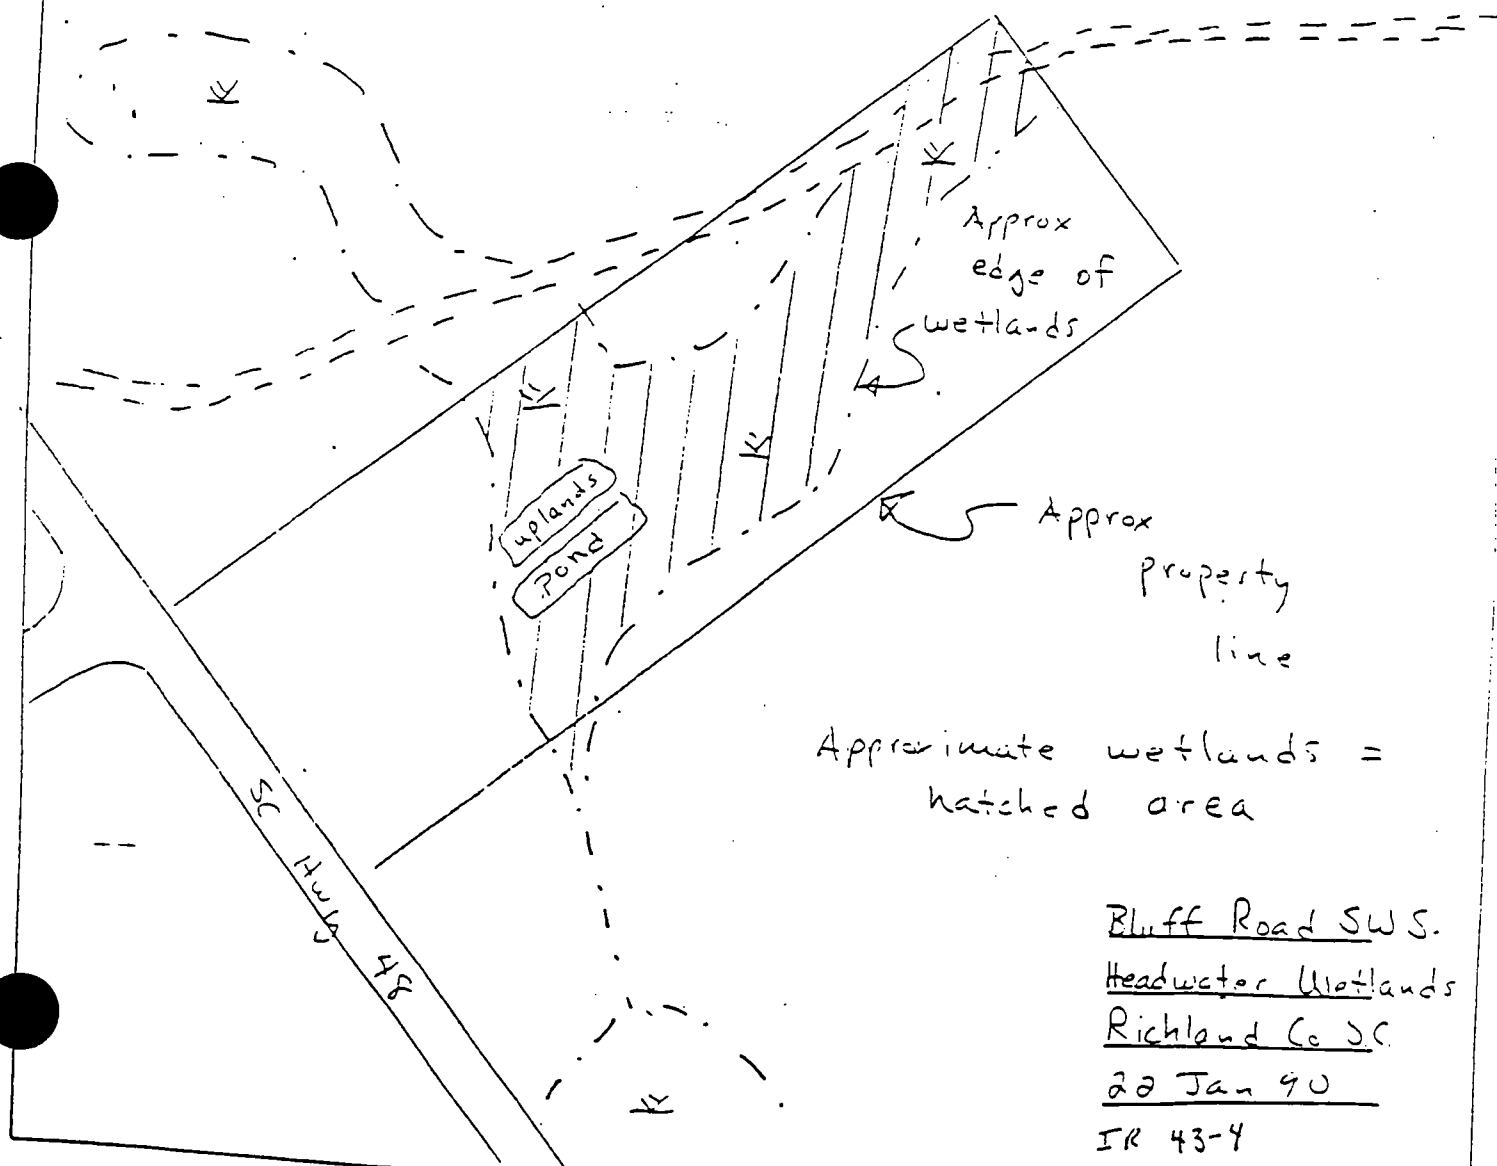 Approx
edge of
wetlands
uplands
Pond
Approx
property
line
Approximate wetlands =
hatched area
SC Hwy 48
Bluff Road SWS.
Headwater Wetlands
Richland Co S.C.
22 Jan 90
IR 43-4